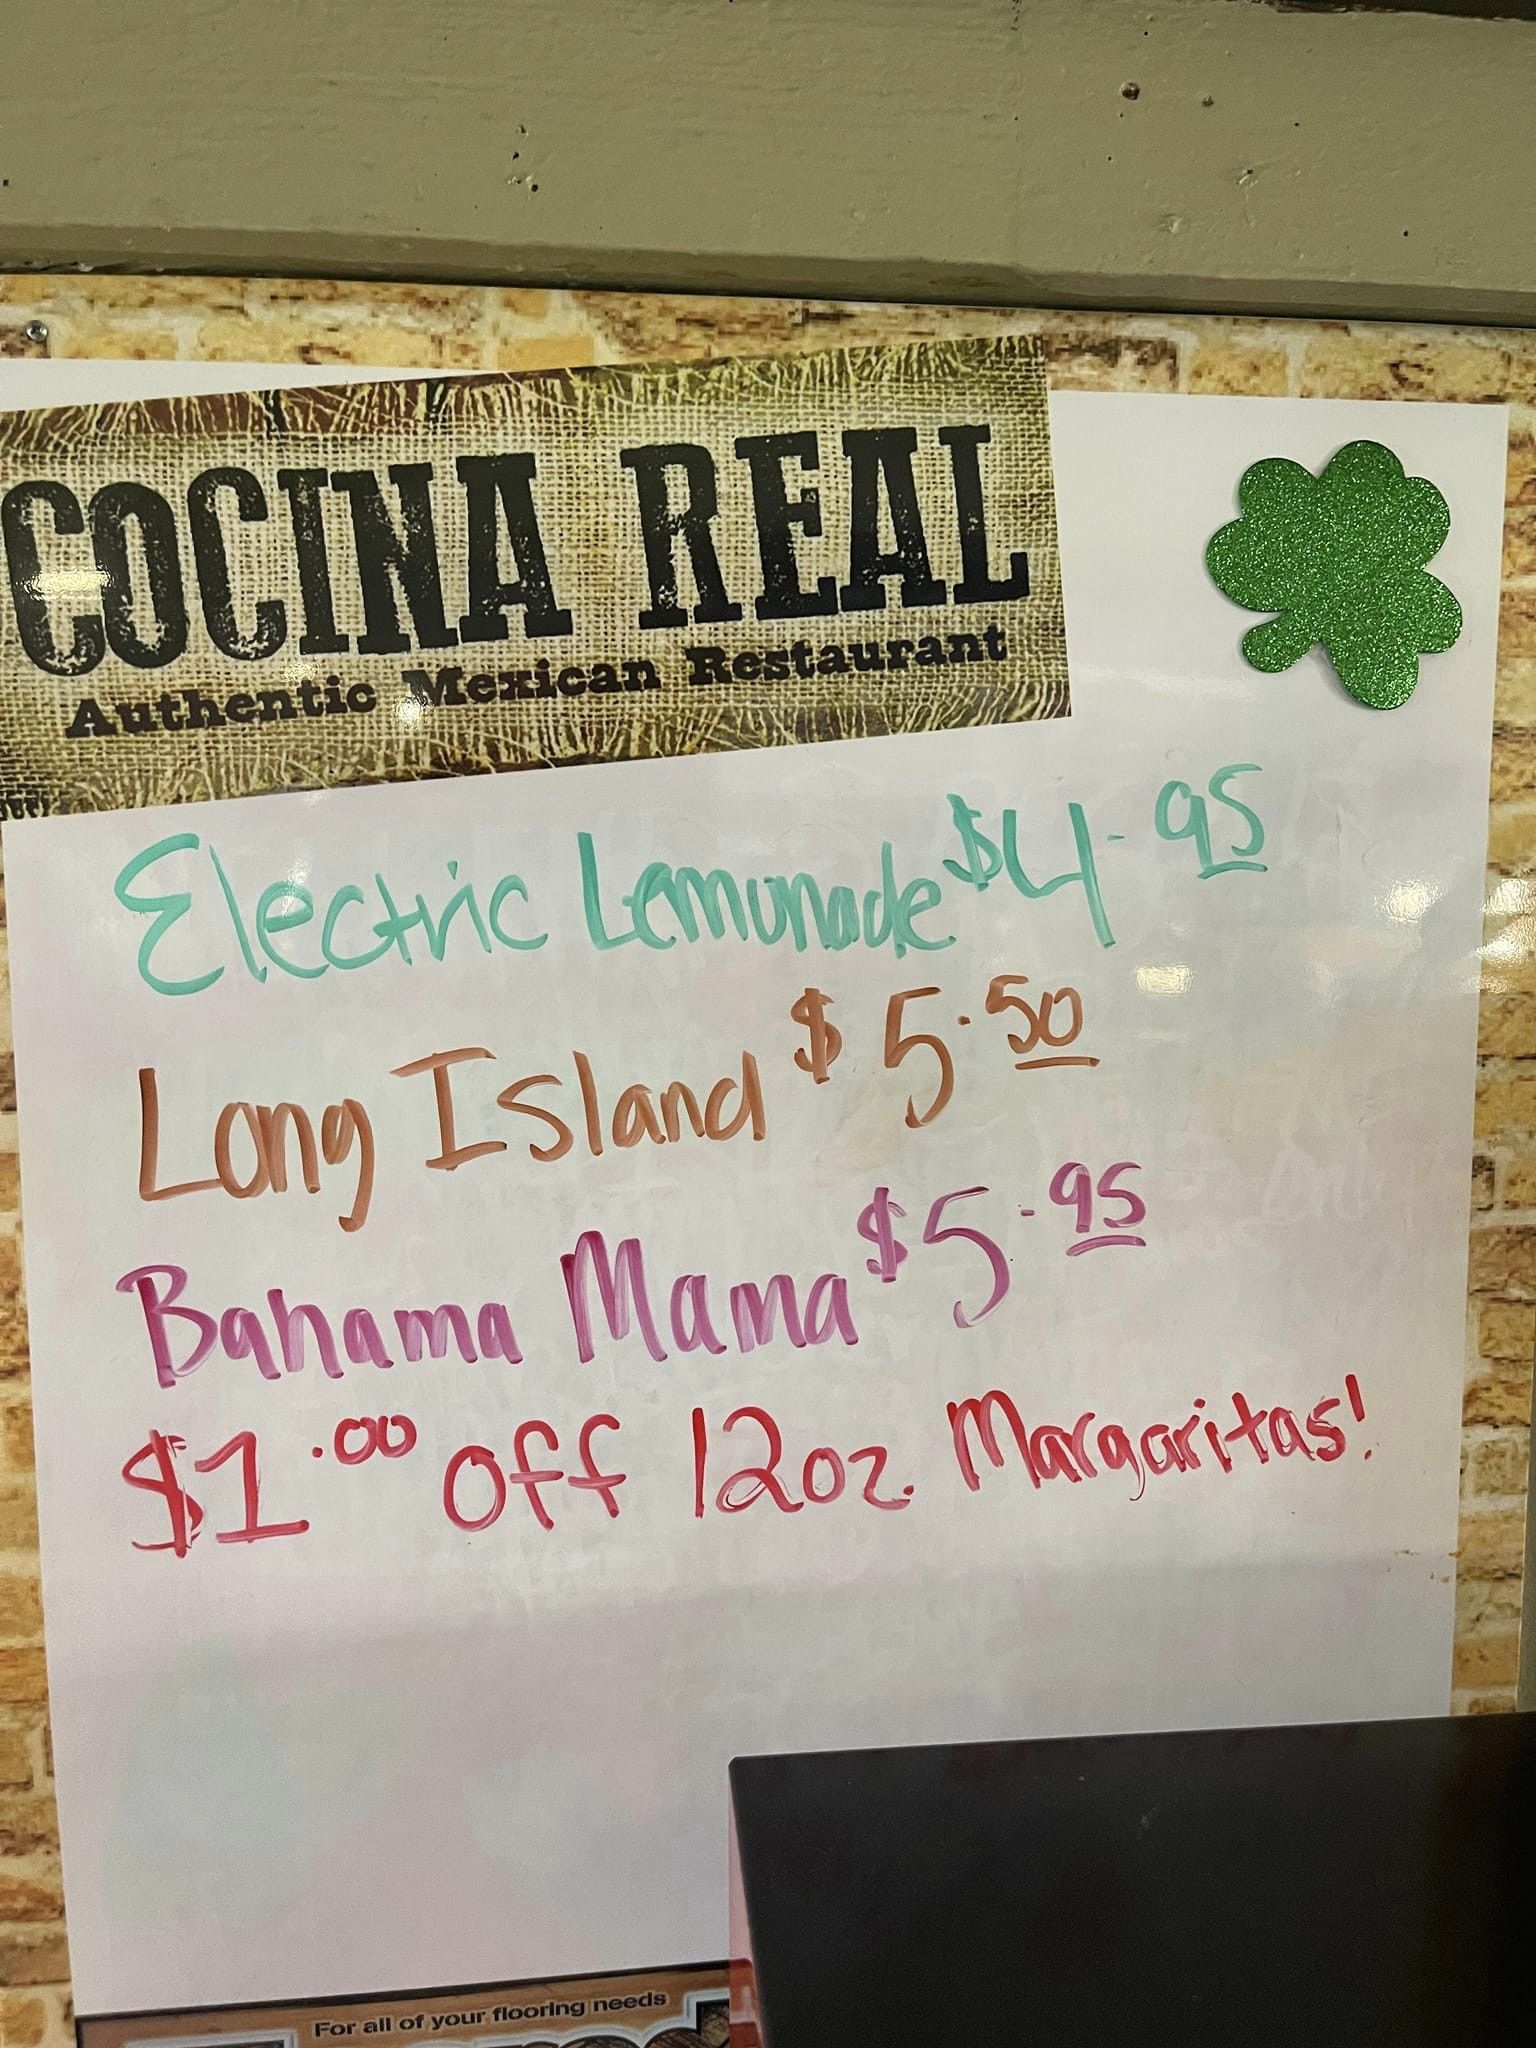 COCINA REAL
Authentic Mexican Restaurant
Electric Lemonade $4.95
Long Island $5.50
Bahama Mama $5.95
$1.00 off 12oz. Margaritas!
For all of your flooring needs